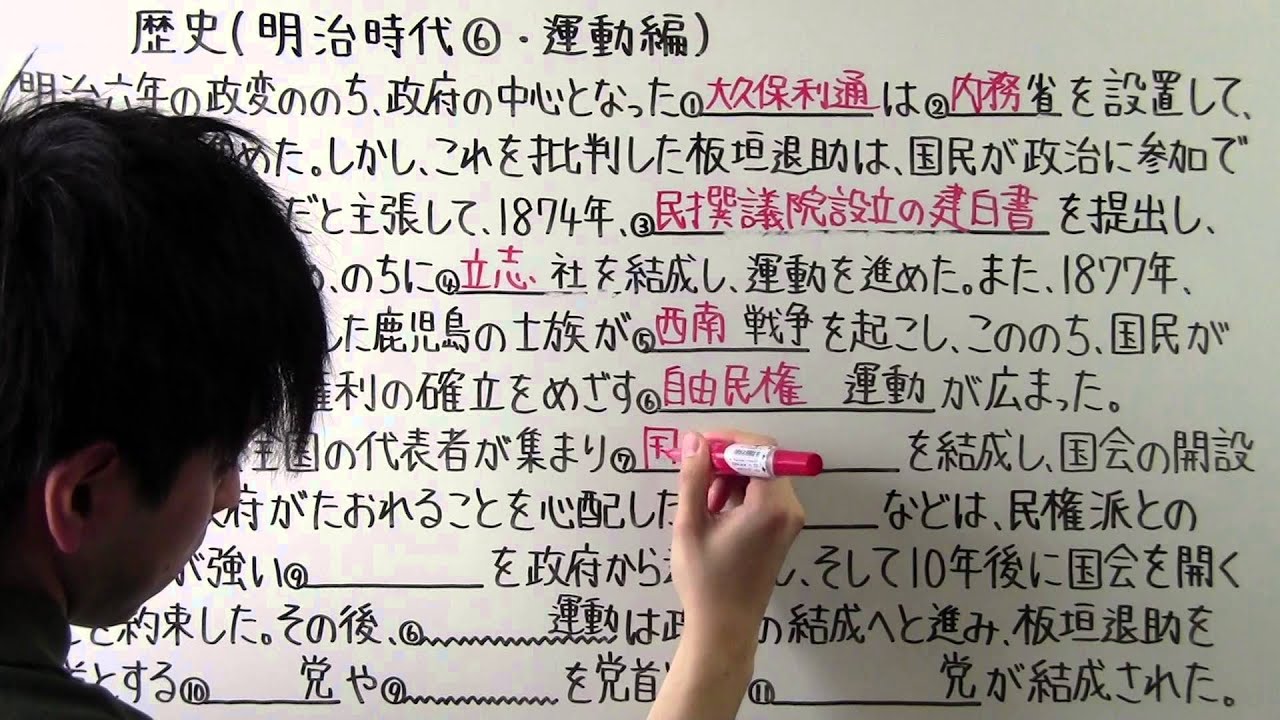 歴史(明治時代⑥・運動編)
明治六年の政変ののち、政府の中心となった①大久保利通は②内務省を設置して、
めた。しかし、これを批判した板垣退助は、国民が政治に参加で
だと主張して、1874年、③民撰議院設立の建白書を提出し、
、のちに④立志社を結成し、運動を進めた。また、1877年、
した鹿児島の士族が⑤西南戦争を起こし、こののち、国民が
権利の確立をめざす⑥自由民権 運動が広まった。
全国の代表者が集まり⑦国 を結成し、国会の開設
政府がたおれることを心配した などは、民権派との
が強い⑨ を政府から し、そして10年後に国会を開く
約束した。その後、⑥ 運動は政 の結成へと進み、板垣退助を
とする⑩ 党や⑨ を党首 ⑪ 党が結成された。